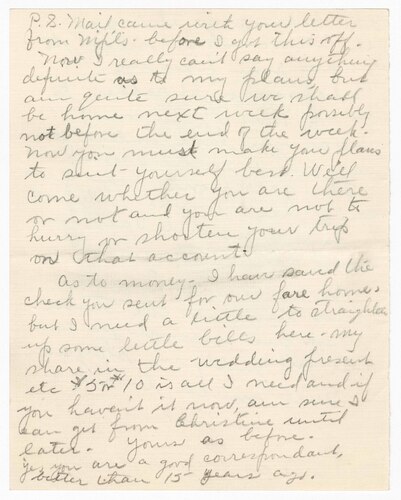 P.S. Mail came with your letter
from Mpls. before I got this off.
Now I really can't say anything
definite as to my plans but
am quite sure we shall
be home next week possibly
not before the end of the week.
Now you must make your plans
to suit yourself best. We'll
come whether you are there
or not and you are not to
hurry or shorten your trip
on that account.
As to money- I have saved the
check you sent for our fare home-
but I need a little to straighten
up some little bills here- my
share in the wedding present
etc $5 or $10 is all I need and if
you haven't it now, am sure I
can get from Christine until
later. Yours as before.
Yes you are a good correspondent,
better than 15 years ago.